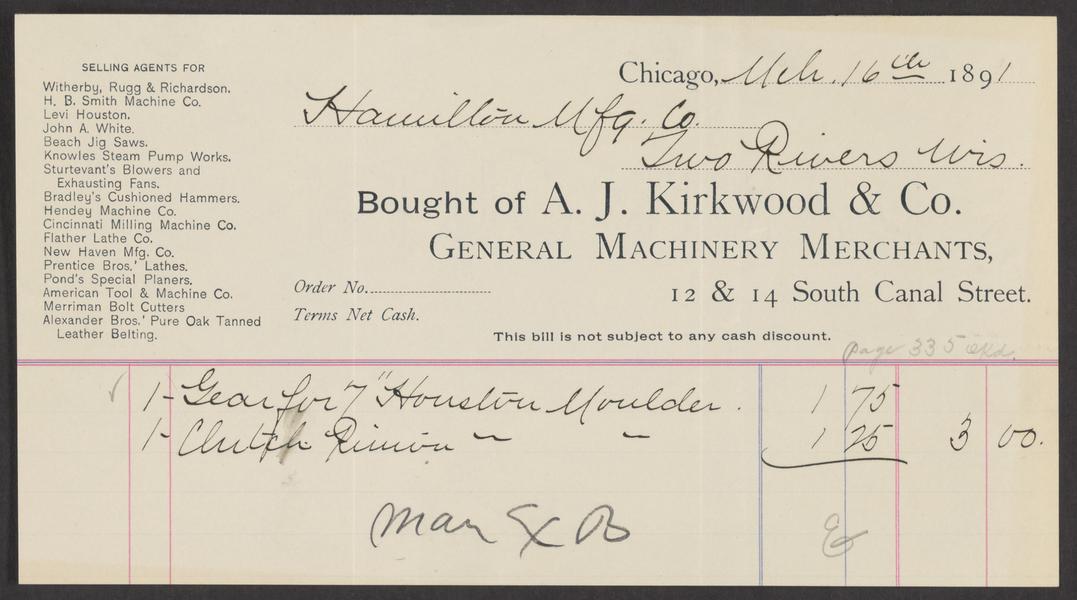 SELLING AGENTS FOR
Witherby, Rugg & Richardson.
H. B. Smith Machine Co.
Levi Houston.
John A. White.
Beach Jig Saws.
Knowles Steam Pump Works.
Sturtevant's Blowers and
Exhausting Fans.
Bradley's Cushioned Hammers.
Hendey Machine Co.
Cincinnati Milling Machine Co.
Flather Lathe Co.
New Haven Mfg. Co.
Prentice Bros.' Lathes.
Pond's Special Planers.
American Tool & Machine Co.
Merriman Bolt Cutters
Alexander Bros.' Pure Oak Tanned
Leather Belting.
Chicago, Mch. 16th 1891
Hamilton Mfg. Co.
Two Rivers Wis.
Bought of A. J. Kirkwood & Co.
GENERAL MACHINERY MERCHANTS,
Order No.
12 & 14 South Canal Street.
Terms Net Cash.
This bill is not subject to any cash discount.
page 335
1- Gear for 7" Houston Moulder. 1 75
1- Clutch Pinion " " 1 25 3 00.
Man Ex B